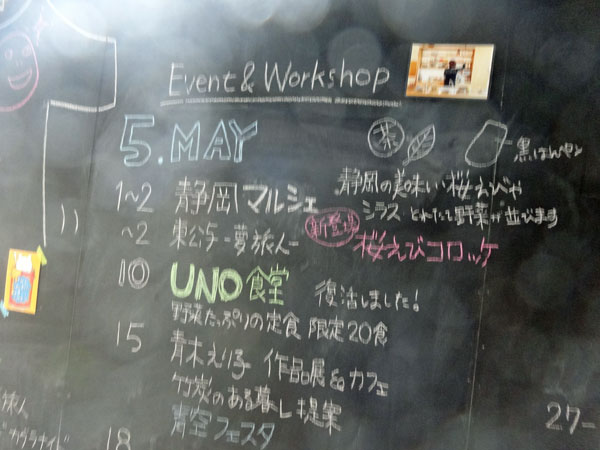 Event & Workshop
5. MAY
茶
黒はんペン
1~2 静岡マルシェ
静岡の美味い桜えびや
シラス とれたて野菜が並びます
~2 東公与 -夢旅人-
新登場 桜えびコロッケ
10 UNO食堂 復活しました!
野菜たっぷりの定食 限定20食
15 青木えり子 作品展&カフェ
竹炭のある暮し提案
18 青空フェスタ
27-
旅人
カグラナイト